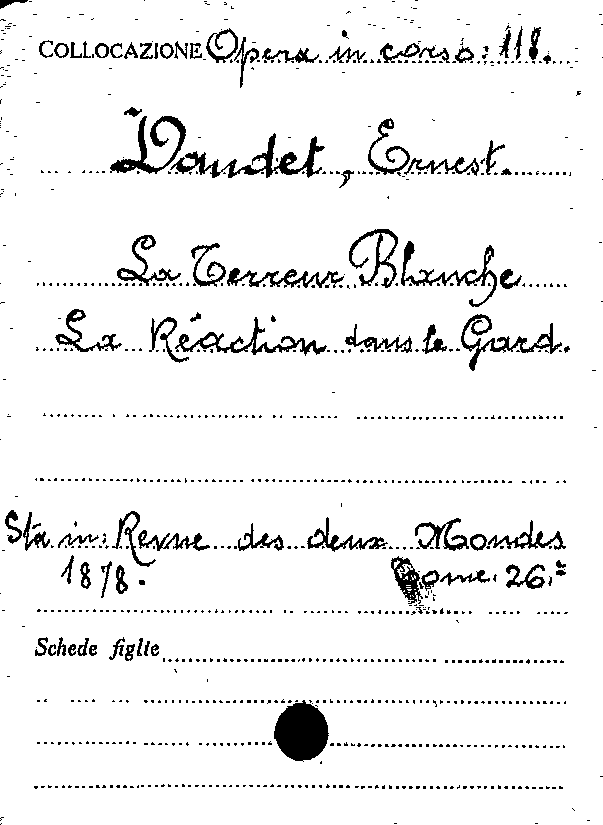 COLLOCAZIONE Opera in corso: 118.
Daudet, Ernest.
La Terreur Blanche
La Réaction dans le Gard.
Sta in: Revue des deux Mondes
1878. Tome. 26.º
Schede figlie